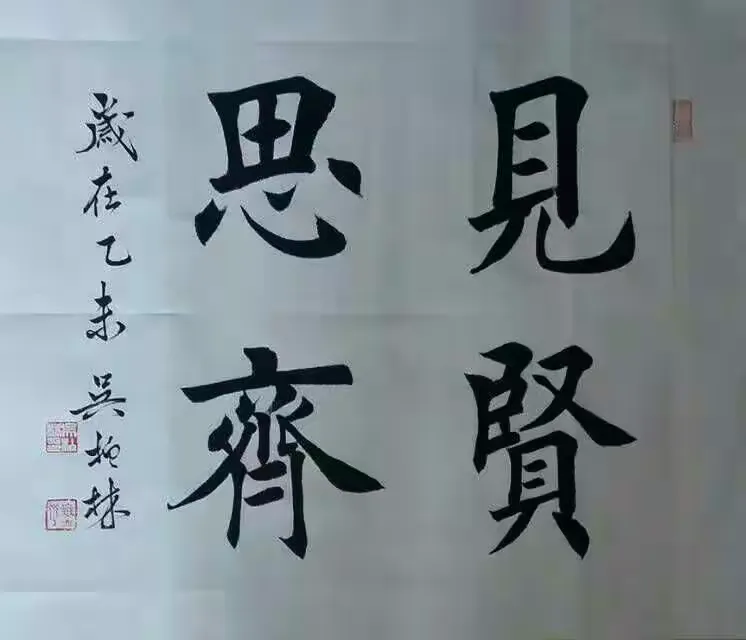 見賢
思齊
歲在乙未 吴 林